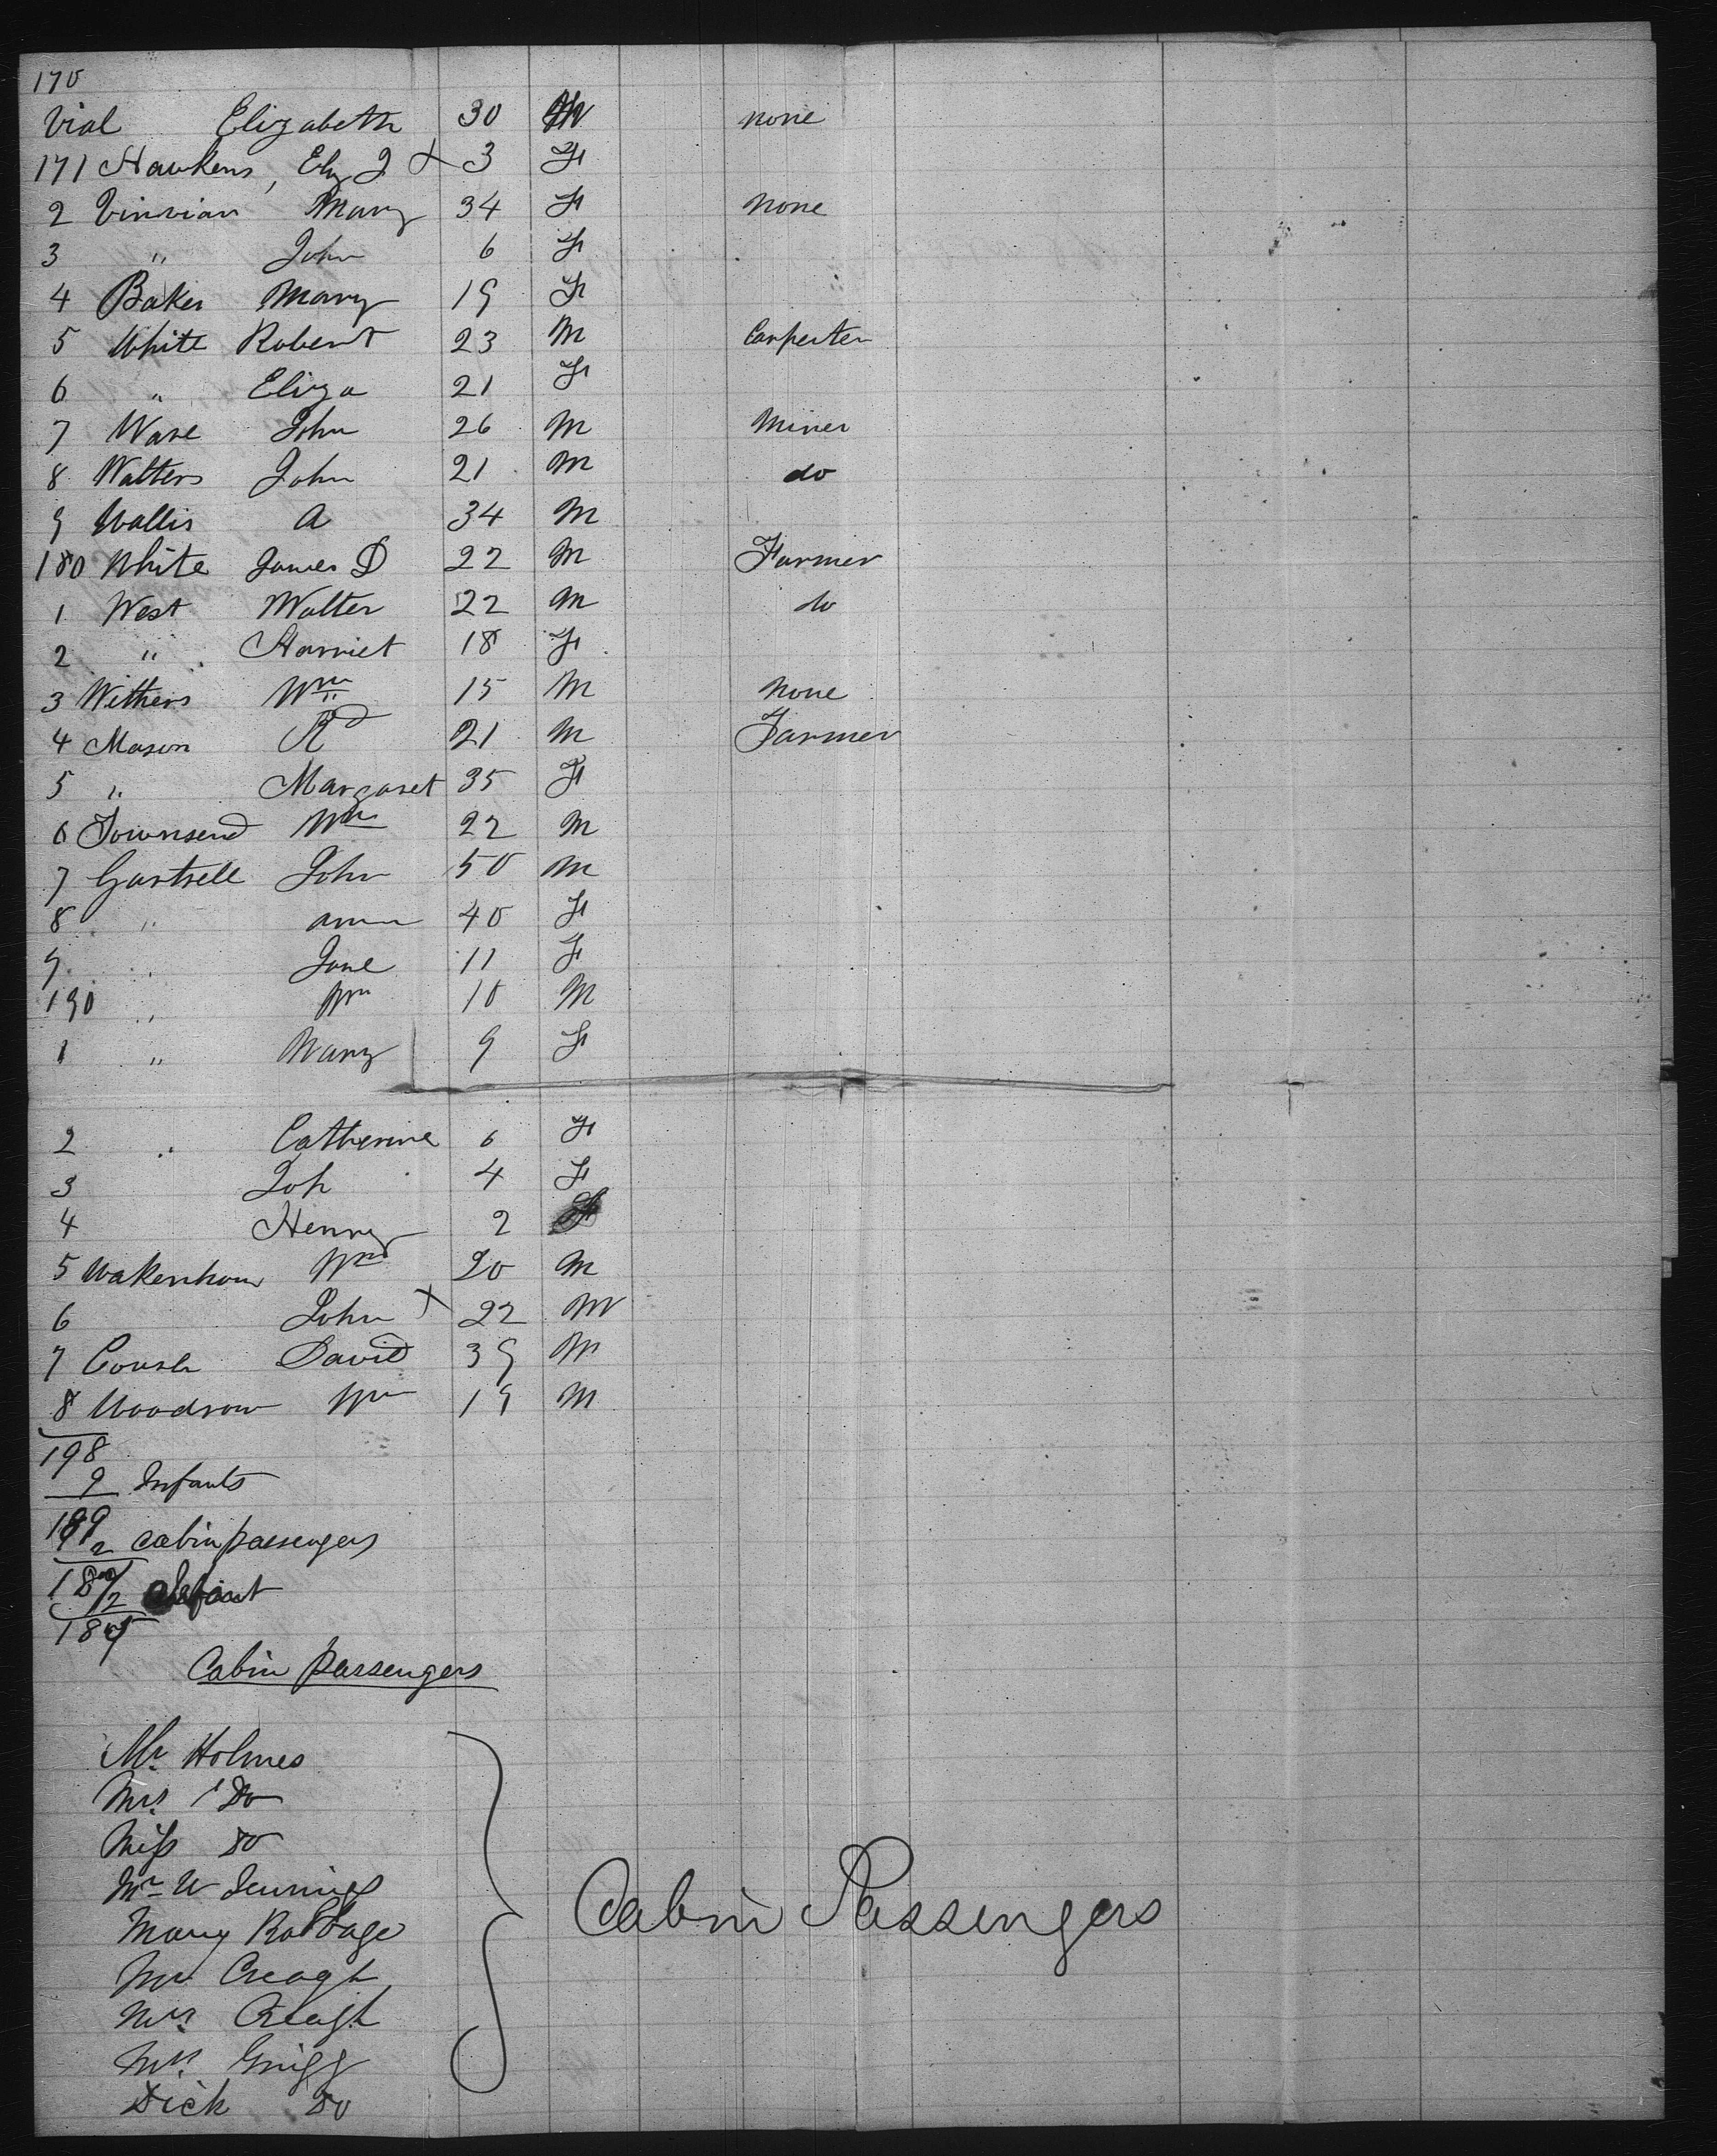 170
Vial Elizabeth 30 none
171 Hawkens, Elz J + 3 F
2 Vinvian Mary 34 F none
3 " John 6 F
4 Baker Mary 19 F
5 White Robert 23 M Carpenter
6 " Eliza 21 F
7 Ware John 26 M Miner
8 Walters John 21 M do
9 Wallis A 34 M
180 White James D 22 M Farmer
1 West Walter 22 M do
2 " Harriet 18 F
3 Withers Wm 15 M none
4 Mason Rd 21 M Farmer
5 " Margaret 35 F
6 Townsend Wm 22 M
7 Gartrell John 50 M
8 " ann 40 F
9 " Jane 11 F
190 " Wm 10 M
1 " Mary 9 F
2 " Catherine 6 F
3 Joh 4 F
4 Henry 2
5 Wakenhour Wm 20 M
6 John + 22 M
7 David 39 M
8 Woodrow Wm 19 M
198
9 Infants
189
2 cabin passengers
187
2 Infant
185
Cabin passengers
Mr. Holmes
Mrs. Do
Miss Do
Mr W Jennings
Mary Robbage
Mr Creagh
Mrs. Creagh
Mrs. Grigg
Dick Do
Cabin Passengers